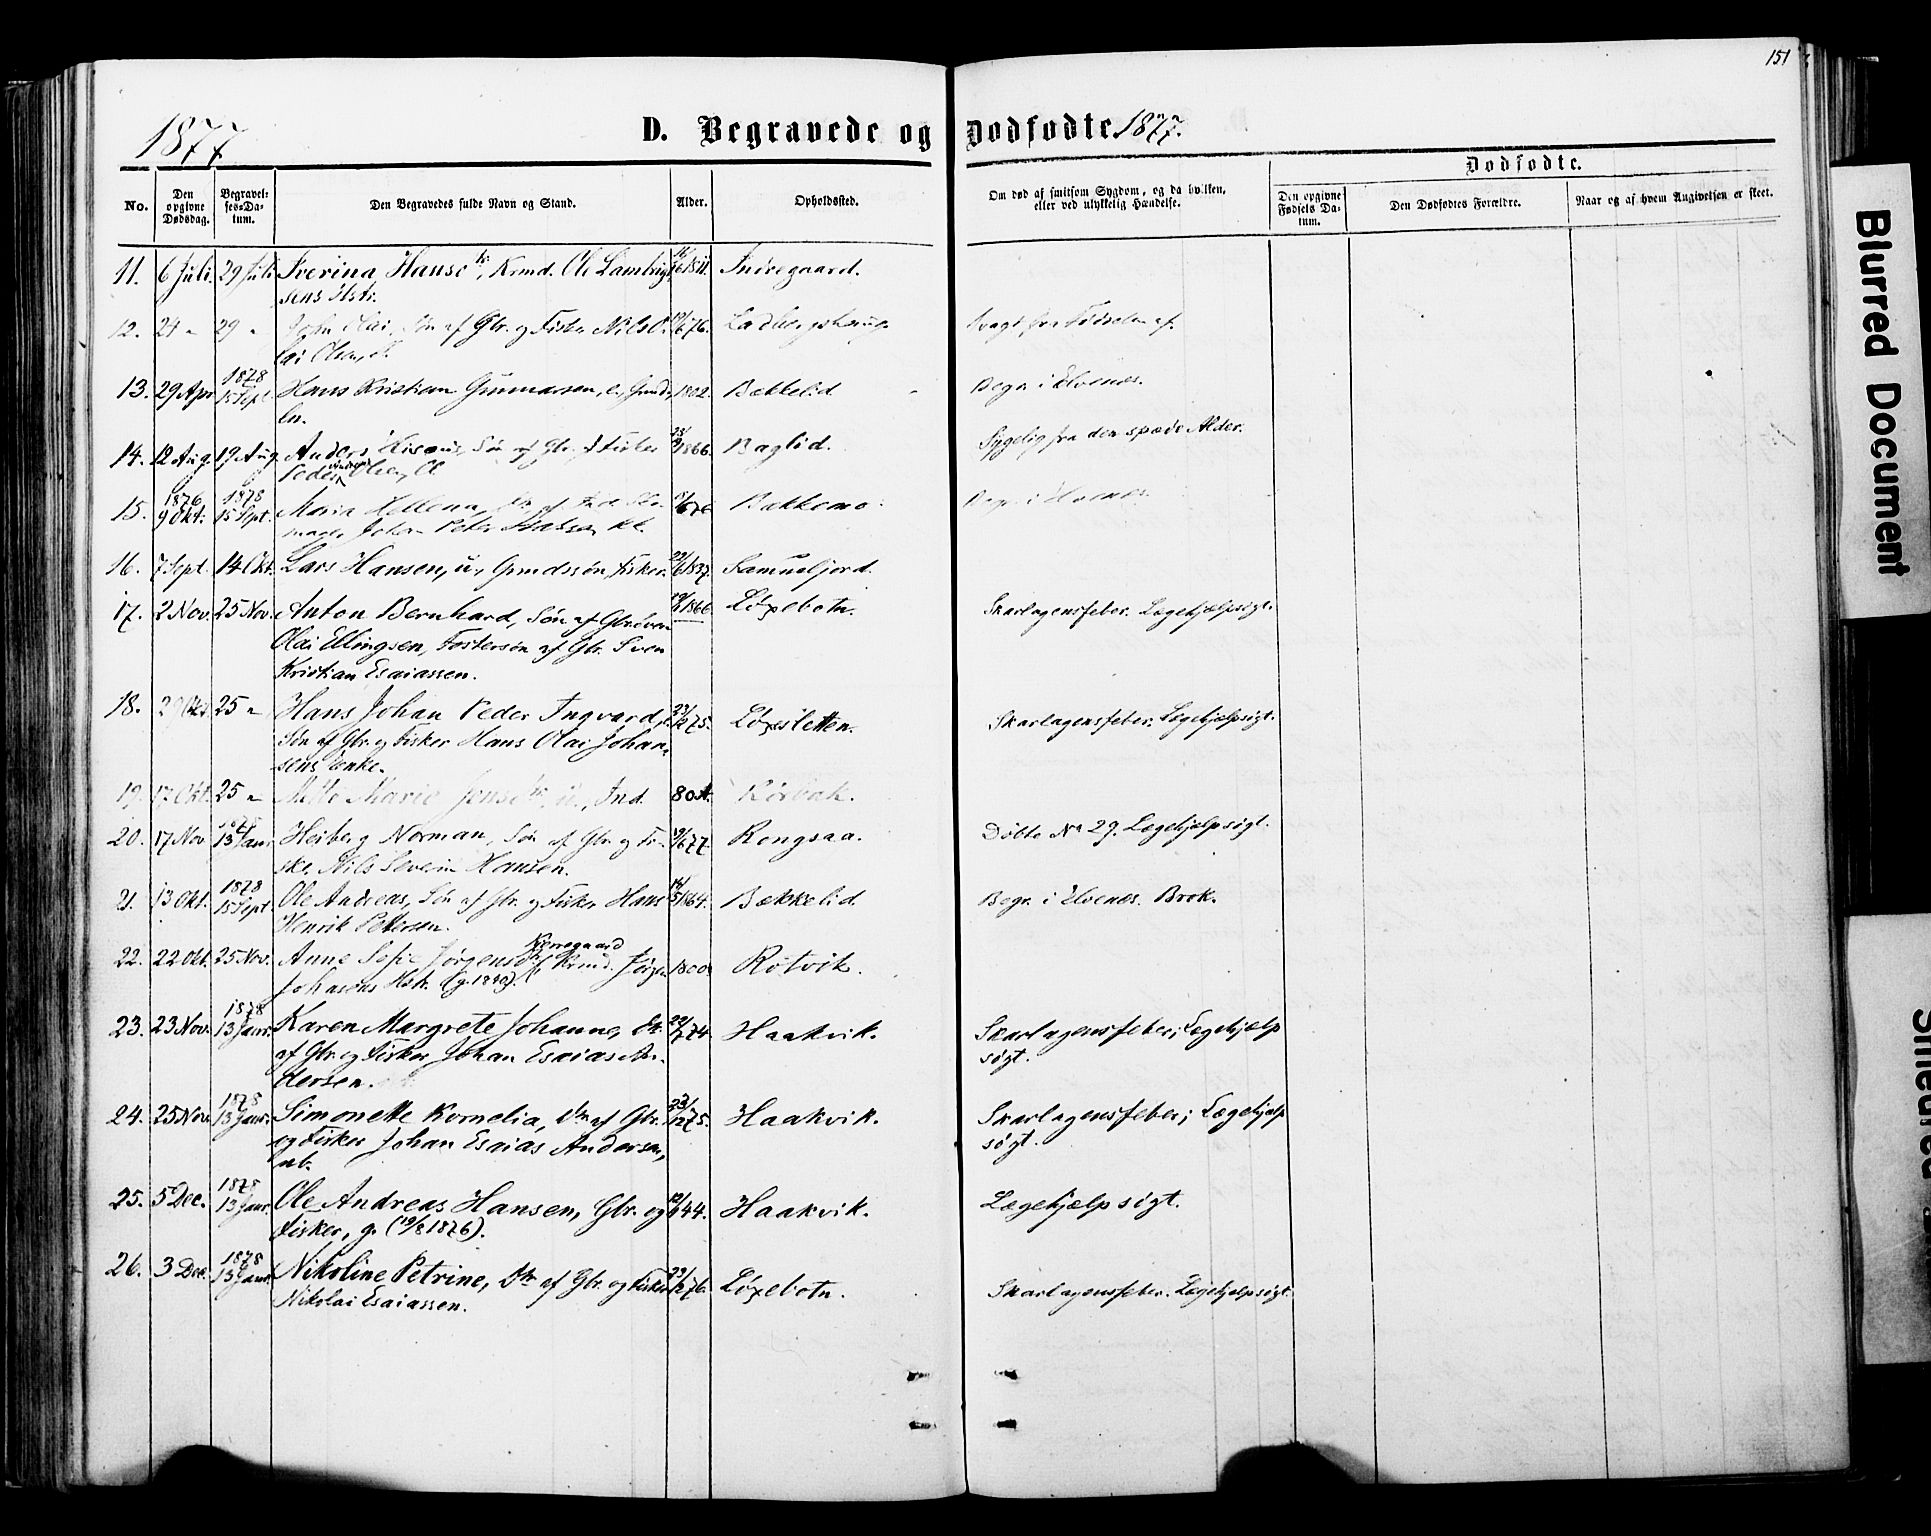 151
1877
D. Begravede og Dødfødte 1877.
Dødfødte.
No.
Den opgivne Dødsdag.
Begravelses-Datum.
Den Begravedes fulde Navn og Stand.
Alder.
Opholdssted.
Om død af smitsom Sygdom, og da hvilken,
eller ved ulykkelig Hændelse.
Den opgivne Fødsels Datum.
Den Dødfødtes Forældre.
Naar og af hvem Angivelsen er skeet.
11. 6 Juli. 29 Juli Iverina Hansdtr, Krmd. Ole Lambrigt
sens Hstr. Indregaard.
12. 24 " 29 " John Olai, Søn af Gbr. og Fisker Nils O
lai Olsen, 76. Svagt fra Fødselen af.
13. 29 Apr 1878 15 Sept Hans Kristian Gunnarsen, e., Gmd, 1802. Bækkelid Begr. i Elvenes.
14. 12 Aug. 19 Aug. Anders Søn af Gbr. & Fisker
Peder Andreas Olsen, 1866. Baglid. Sygelig fra den spæde Alder.
15. 1876 9 Okt. 1878 15 Sept. Maria Hellena, Dtr. af
mager Johan Peter Bakkemo. Begr. i Elvenes.
16. 7 Sept. 14 Okt. Lars Hansen, u., Gmdssøn, Fisker. 1837. Samuelfjord.
17. 2 Nov. 25 Nov. Anton Bernhard, Søn af Gbr. Sven
Olai Ellingsen, Fostersøn af Gbr. Sven
Kristian Esaiassen. 1866 Løxebotn. Skarlagensfeber. Lægehjælp søgt.
18. 29 Okt. 25 " Hans Johan Peder Ingvard,
Søn af Gbr. og Fisker Hans Olai Johan-
sens Enke. 75. Løxesletten. Skarlagensfeber. Lægehjælp søgt.
19. 17 Okt. 25 " Mette Marie Jensdtr, u., Ind. 80 A. Rørbak.
20. 17 Nov. 1878 13 Janr. Heiberg Norman, Søn af Gbr. og Fi-
sker Nils Severin Hansen. 77. Rongsaa. Døbte No 29. Lægehjælp søgt.
21. 13 Okt. 1878 15 Sept. Ole Andreas, Søn af Gbr. og Fisker Hans
Henrik Pettersen. 1864. Bækkelid. Begr. i Elvenes. Brok.
22. 22 Okt. 25 Nov. Anne Sofie Jørgensdtr Krmd. Jørgen
Johnsens Hstr. 1800. Rotvik.
23. 23 Nov. 1878 13 Janr. Karen Margrete Johanne, Dtr.
af Gbr. og Fisker Johan Esaias An-
dersen. 74. Haakvik. Skarlagensfeber; Lægehjælp
søgt.
24. 25 Nov. 1878 13 Janr. Simonette Kornelia, Dtr. af Gbr.
og Fisker Johan Esaias Andersen,
75. Haakvik. Skarlagensfeber; Lægehjælp
søgt.
25. 5 Dec. 1878 13 Janr. Ole Andreas Hansen, Gbr. og
Fisker, g. (19/8 1876). 44. Haakvik. Lægehjælp søgt.
26. 3 Dec. 1878 13 Janr. Nikoline Petrine, Dtr. af Gbr. og Fisker
Nikolai Esaiassen. 76. Løxebotn. Skarlagensfeber. Lægehjælp søgt.
Blurred Document